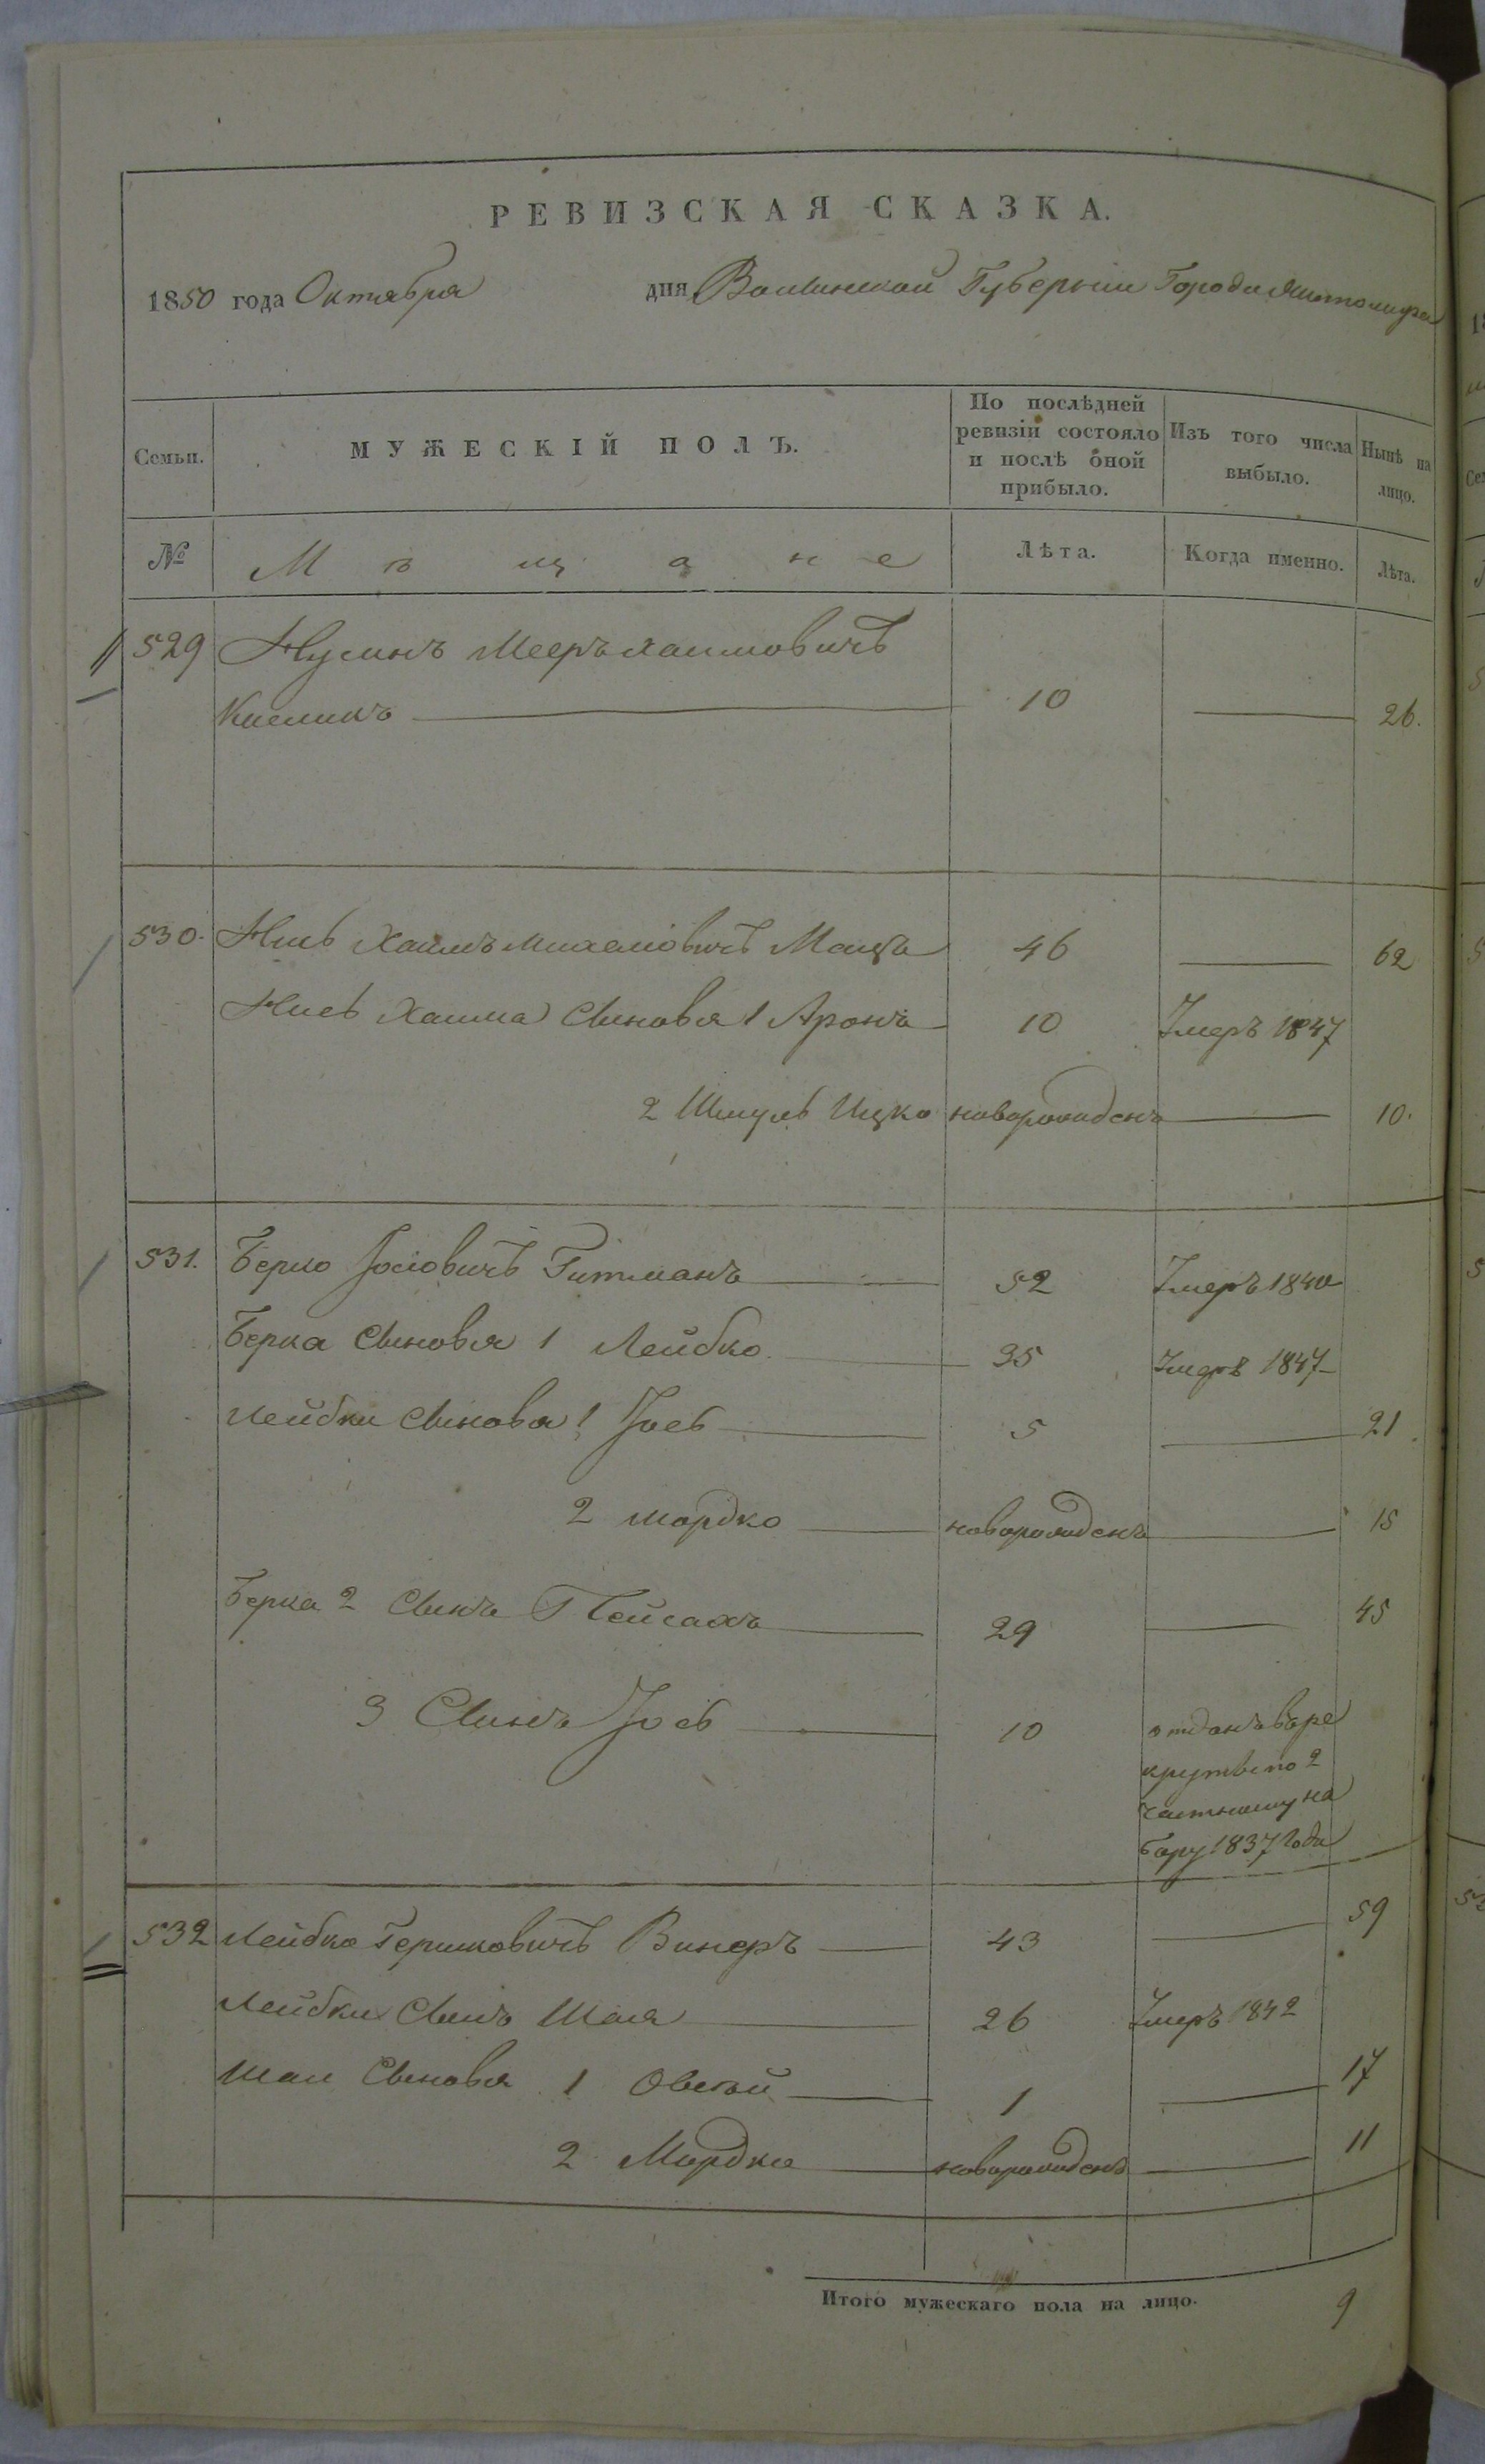 РЕВИЗСКАЯ СКАЗКА.
1850 года Октября дня Волынской Губернии Города Житомира
Семьи. МУЖЕСКІЙ ПОЛЪ. По послѣдней ревизіи состояло и послѣ оной прибыло. Изъ того числа выбыло. Нынѣ на лицо.
№ Мѣщане Лѣта. Когда именно. Лѣта.
529 Нусинъ Мееръ Хаимовичъ
10 26.
530. Хаимъ 46 62
Хаима Сыновья 1 Аронъ 10 Умеръ 1847
2 Шмуль Ицко новорожденъ 10.
531. Берко Іосіовичъ Гитманъ 52 Умеръ 1840
Берка Сыновья 1 Лейбко 35 Умеръ 1847
Лейбки Сыновья 1 Іось 5 21
2 Мордко новорожденъ 15
Берка 2 Сынъ Пейсахъ 29 45
3 Сынъ Іось 10 отданъ въ ре
круты по 2
частному на
бору 1837 Года
532 Лейбко Гершковичъ Винеръ 43 59
Лейбки Сынъ Шая 26 Умеръ 1842
Шаи Сыновья 1 Овсій 1 17
2 Мордко новорожденъ 11
Итого мужескаго пола на лицо. 9